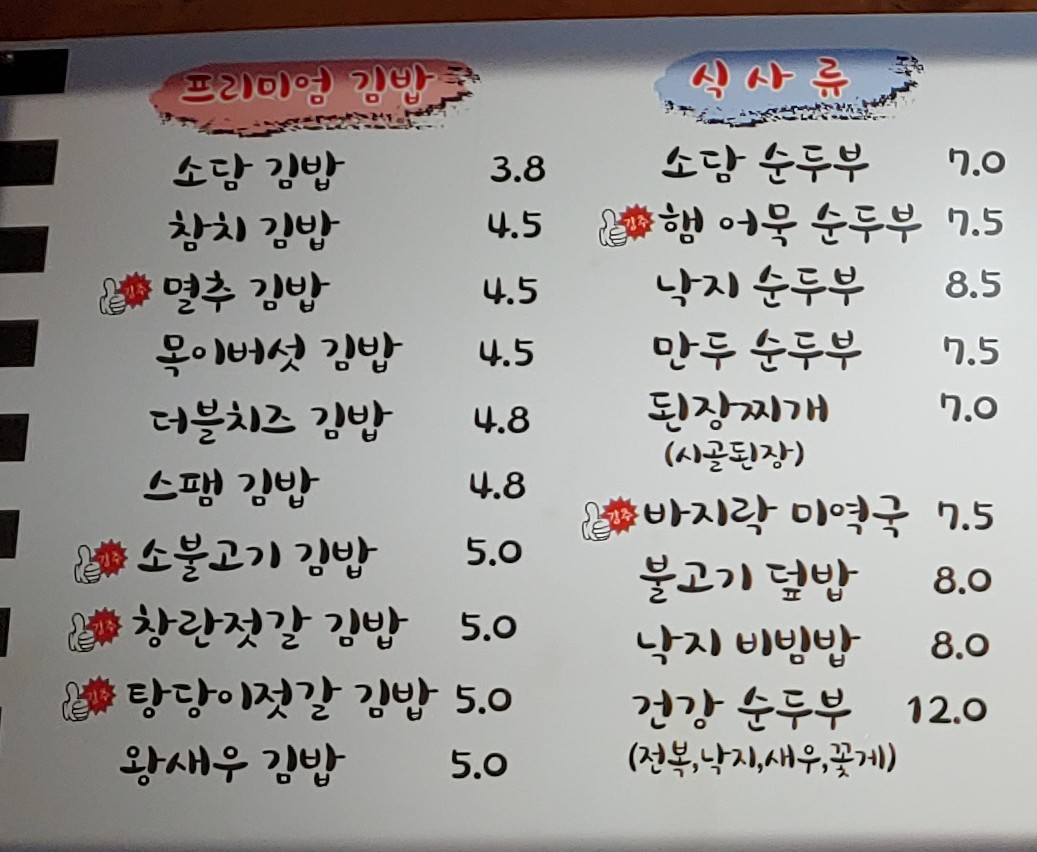 프리미엄 김밥
소담 김밥 3.8
참치 김밥 4.5
강추 멸추 김밥 4.5
목이버섯 김밥 4.5
더블치즈 김밥 4.8
스팸 김밥 4.8
강추 소불고기 김밥 5.0
강추 창란젓갈 김밥 5.0
강추 탕탕이젓갈 김밥 5.0
왕새우 김밥 5.0
식사류
소담 순두부 7.0
강추 햄 어묵 순두부 7.5
낙지 순두부 8.5
만두 순두부 7.5
된장찌개 7.0
(시골된장)
강추 바지락 미역국 7.5
불고기 덮밥 8.0
낙지 비빔밥 8.0
건강 순두부 12.0
(전복,낙지,새우,꽃게)